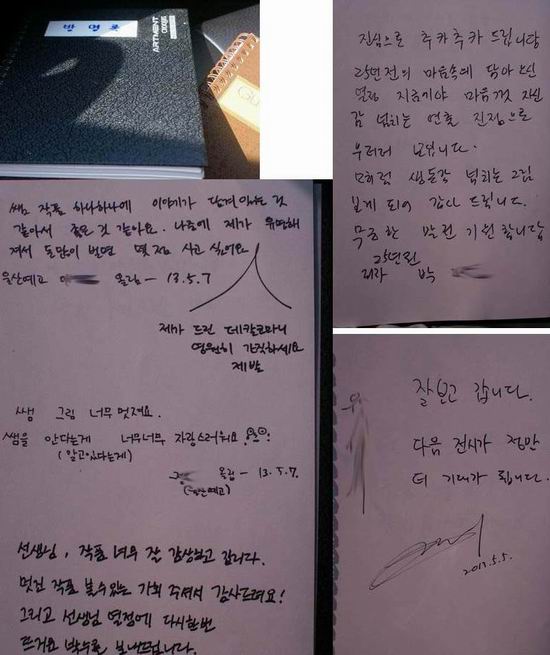 방명록
ARTMENT
진심으로 축카축카 드립니당
25년전의 마음속에 담아 오신
열정 지금이야 마음껏 자신
감 넘치는 연출 진정으로
우러러 보입니다.
생동감 넘치는 그림
보게 되어 감사 드립니다.
무궁한 발전 기원합니다
25년된
박
쌤 작품 하나하나에 이야기가 담겨 있는 것
같아서 좋은 것 같아요. 나중에 제가 유명해
져서 돈많이 벌면 몇 점 사고 싶어요
울산예고 올림 - 13.5.7
제가 드린 데칼코마니
영원히 간직하세요
제발
쌤 그림 너무 멋져요.
쌤을 안다는게 너무너무 자랑스러워요
(알고있다는게)
올림 - 13.5.7.
(울산예고)
선생님, 작품 너무 잘 감상하고 갑니다.
멋진 작품 볼수있는 기회 주셔서 감사드려요!
그리고 선생님 열정에 다시한번
뜨거운 박수를 보내드립니다.
잘보고 갑니다.
다음 전시가 정말
더 기대가 됩니다.
2013.5.5.